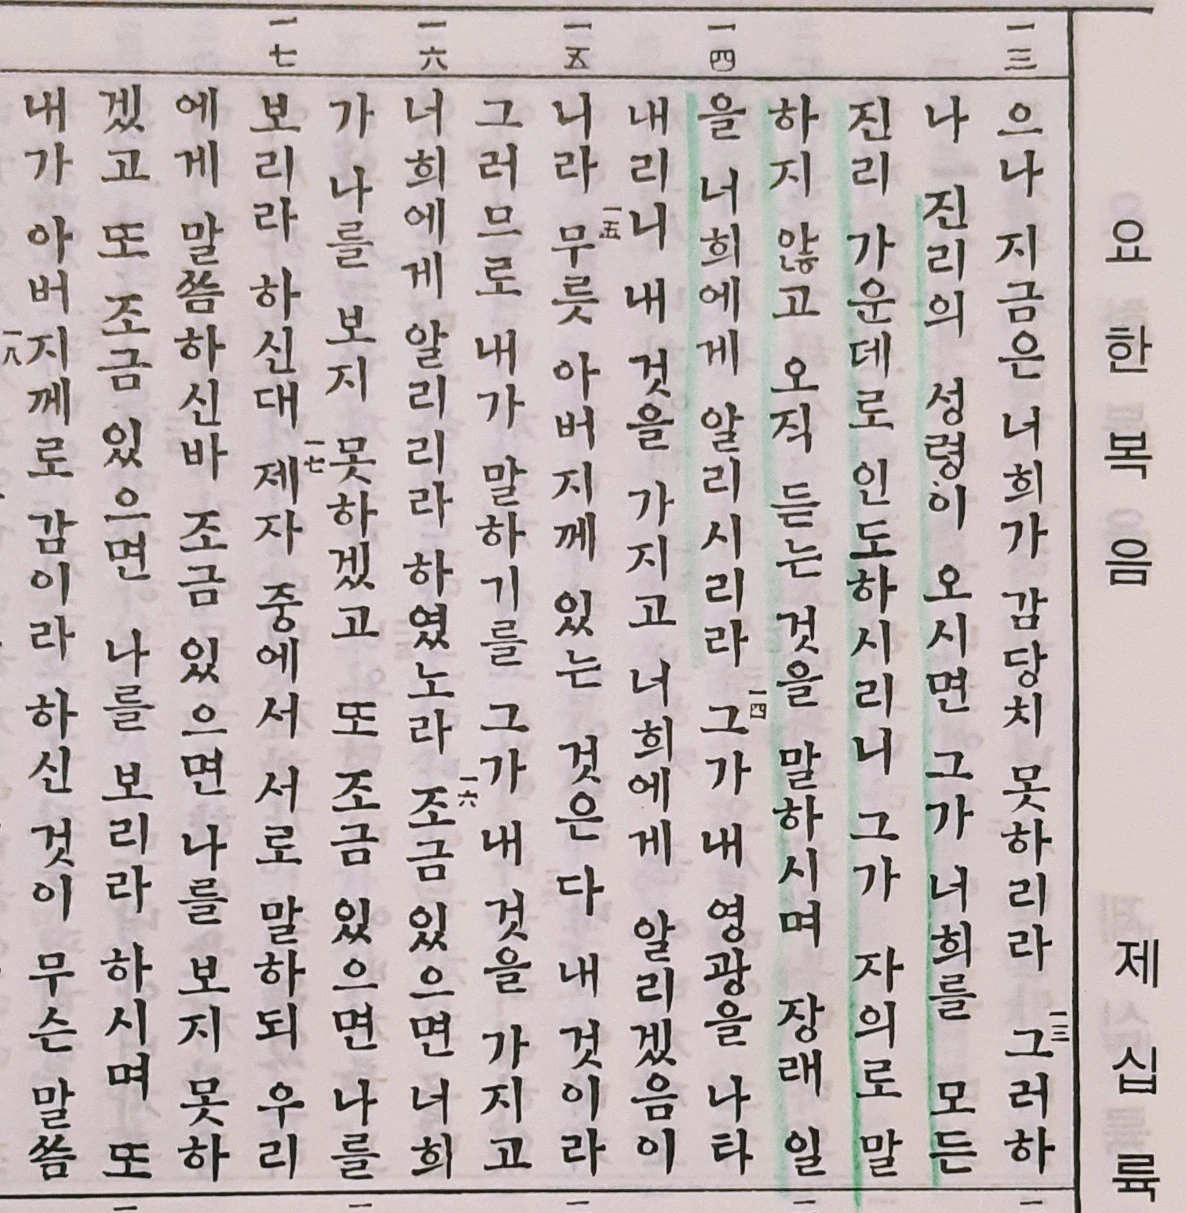 요한복음 제십륙
一三
으나 지금은 너희가 감당치 못하리라 一三 그러하
나 진리의 성령이 오시면 그가 너희를 모든
진리 가운데로 인도하시리니 그가 자의로 말
하지 않고 오직 듣는 것을 말하시며 장래 일
一四
을 너희에게 알리시리라 一四 그가 내 영광을 나타
내리니 내 것을 가지고 너희에게 알리겠음이
一五
니라 一五 무릇 아버지께 있는 것은 다 내 것이라
그러므로 내가 말하기를 그가 내 것을 가지고
一六
너희에게 알리리라 하였노라 一六 조금 있으면 너희
가 나를 보지 못하겠고 또 조금 있으면 나를
一七
보리라 하신대 一七 제자 중에서 서로 말하되 우리
에게 말씀하신바 조금 있으면 나를 보지 못하
겠고 또 조금 있으면 나를 보리라 하시며 또
내가 아버지께로 감이라 하신 것이 무슨 말씀
一八